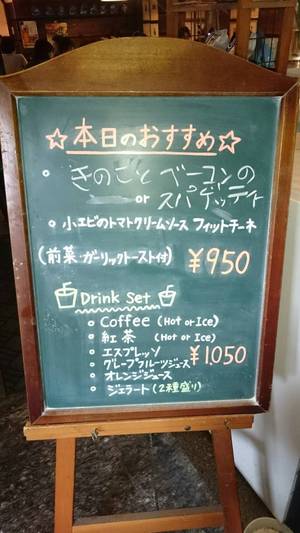 ☆本日のおすすめ☆
○ きのことベーコンの
or スパゲッティ
○ 小エビのトマトクリームソース フィットチーネ
(前菜・ガーリックトースト付) ¥950
Drink Set
○ Coffee (Hot or Ice)
○ 紅茶 (Hot or Ice)
○ エスプレッソ
○ グレープフルーツジュース ¥1.050
○ オレンジジュース
○ ジェラート (2種盛り)